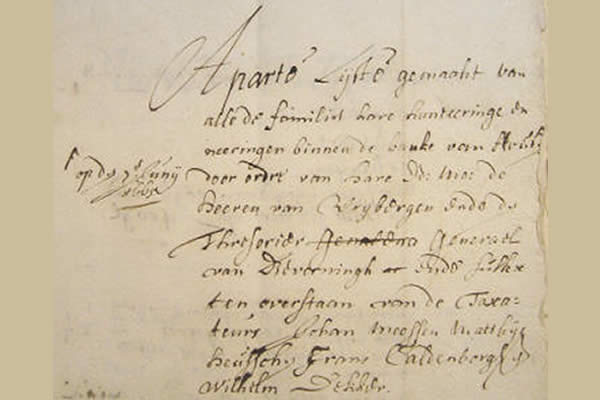 Aparte Lijste gemaakt van
alle de familien hare hanteeringe en
neeringen binnen de banke van
op dy Junij
door ordre van hare Ed: Mo: de
heeren van Vrybergen ende de
Thresorier Generael
van ende
ten overstaan van de Taxa-
teurs Johan Meessen Matthijs
Frans Caldenbergh
Wilhelm Dekker.